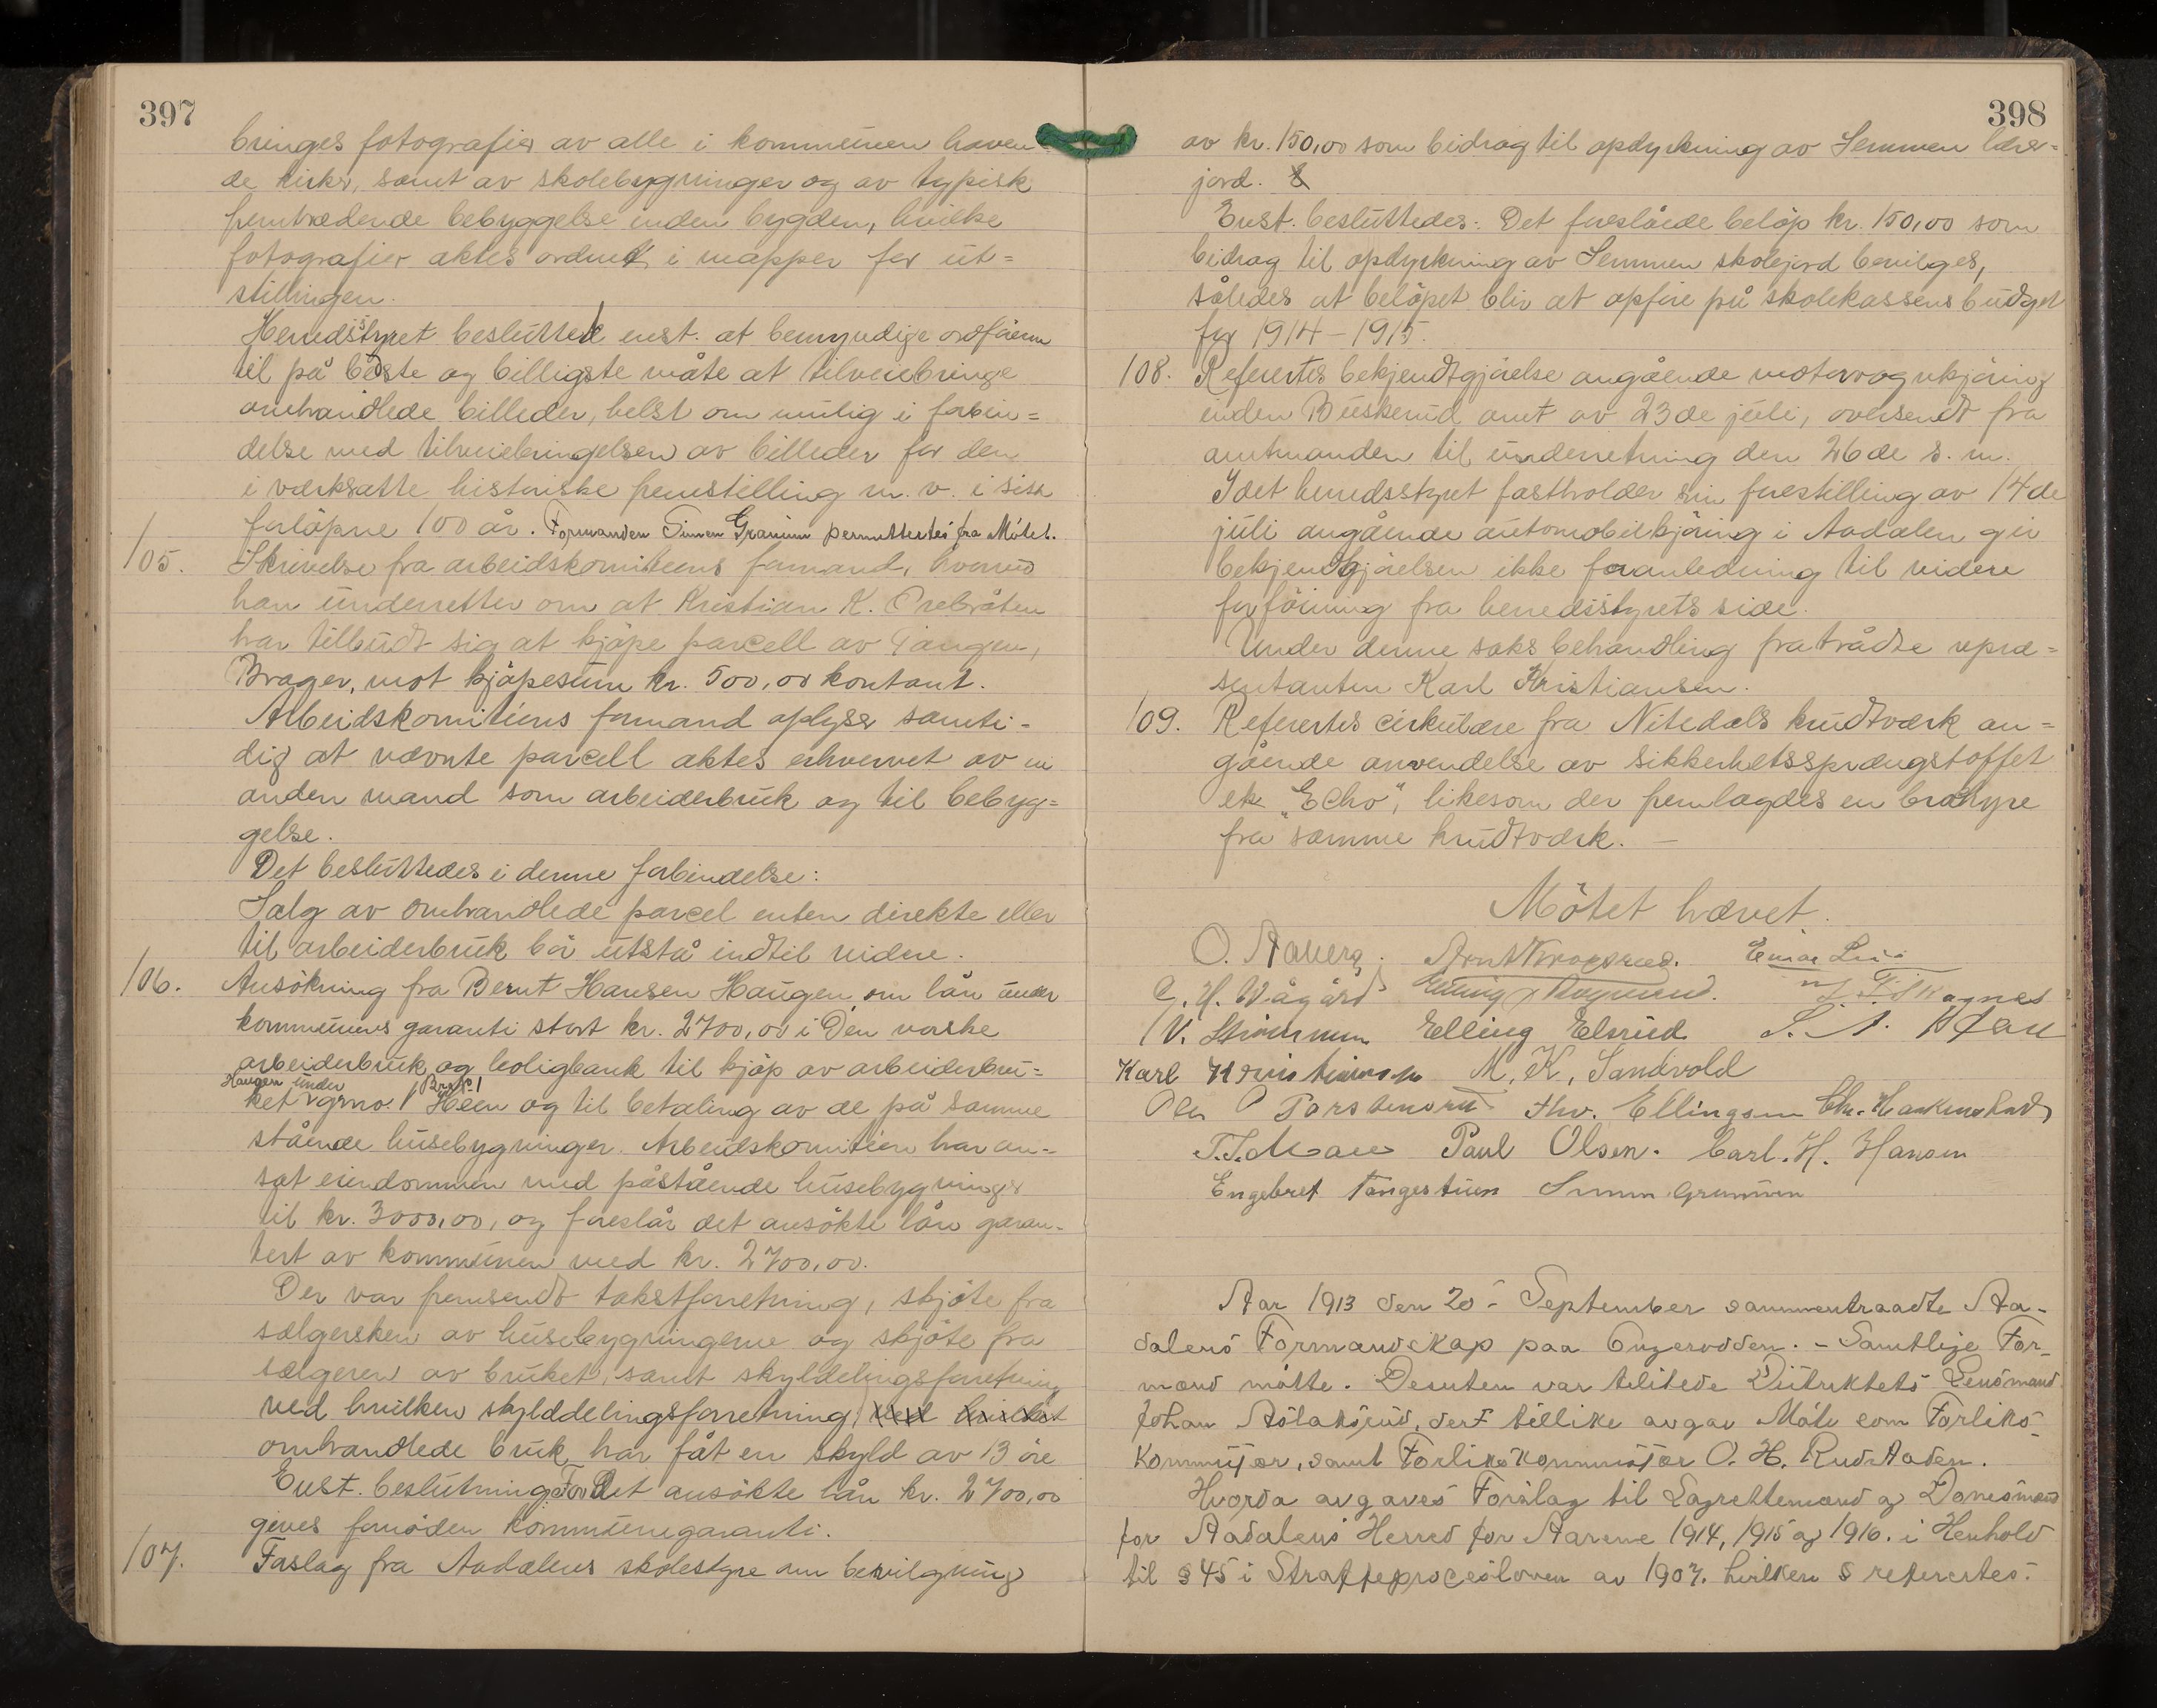 397
bringes fotografier av alle i kommunen haven
de kirker, samt av skolebygninger og av typisk
fremtrædende bebyggelse inden bygden, hvilke
fotografier aktes ordnet i mapper for ut=
stillingen.
Herredsstyret besluttet enst. at bemyndige ordføreren
til på bedste og billigste måte at tilveiebringe
omhandlede billeder, helst om mulig i forbin=
delse med tilveiebringelsen av billeder for den
i værksatte historiske fremstilling m. v. i sist
forløpne 100 år. Formanden Simen Granum permittertes fra Møtet.
105. Skrivelse fra arbeidskomiteens formand, hvorved
han underretter om at Kristian K. Orebråten
har tilbudt sig at kjøpe parcell av Tangen,
Brager, mot kjøpesum kr. 500,00 kontant.
Arbeidskomiteens formand oplyser samti-
dig at nævnte parcell aktes erhvervet av en
anden mand som arbeiderbruk og til bebyg=
gelse.
Det besluttedes i denne forbindelse:
Salg av omhandlede parcel enten direkte eller
til arbeiderbruk bør utstå indtil videre.
106. Ansøkning fra Bernt Hansen Haugen om lån under
kommunens garanti stort kr. 2700,00 i Den norske
arbeiderbruk og boligbank til kjøp av arbeiderbru=
Haugen under Brno 1
ket grno. 1 Heen og til betaling av de på samme
stående husebygninger. Arbeidskomiteen har an-
sat eiendommen med påstående husebygninger
til kr. 3000,00, og foreslår det ansøkte lån garan-
tert av kommunen med kr. 2700,00.
Der var fremsendt takstforretning, skjøte fra
sælgersken av husebygningerne og skjøte fra
sælgeren av bruket, samt skylddelingsforretning
ved hvilken skylddelingsforretning, ved hvilket
omhandlede bruk har fåt en skyld av 13 øre
Enst. beslutning: For det ansøkte lån kr. 2700,00
gives fornøden kommunegaranti.
107. Forslag fra Aadalens skolestyre om bevilgning
398
av kr. 150,00 som bidrag til opdyrkning av Semmen lærer=
jord.
Enst. besluttedes: Det foreslåede beløp kr. 150,00 som
bidrag til opdyrkning av Semmen skolejord bevilges,
således at beløpet blir at opføre på skolekassens budget
for 1914-1915.
108. Refertes bekjendtgjørelse angående motorvognkjøring
inden Buskerud amt av 23de juli, oversendt fra
amtmanden til underretning den 26de s. m.
Idet herredsstyret fastholder sin forestilling av 14de
juli angående automobilkjøring i Aadalen gir
bekjendtgjørelsen ikke foranledning til videre
forføining fra herredsstyrets side.
Under denne saks behandling fratrådte repræ=
sentanten Karl Kristiansen.
109. Refertes cirkulære fra Nitedals krudtværk an=
gående anvendelse av sikkerhetssprængstoffet
"Echo", likesom der fremlagdes en brochyre
fra samme krudtværk. -
Møtet hævet.
O. Aaberg. Einar Lie
E. H. Vågård
Elling Elsrud
Karl Kristiansen M. K. Sandvold
Thv. Ellingsen
Paul Olsen. Carl. H. Hansen
Engebret Tangestuen Simen Granum
Aar 1913 den 20- September sammentraadte Aa-
dalens Formandskap paa Ongerodden. - Samtlige For-
mænd møtte. Desuten var tilstede Distriktets Lensmand
Johan Aslaksrud, der tillike avgav Møte som Forliks-
kommisær, samt Forlikskommisær O. H. Rud Aaden.
Hvorda avgaves Forslag til Lagrettemænd og Domsmænd
for Aadalens Herred for Aarene 1914, 1915 og 1916. i Henhold
til § 45 i Straffeprocesloven av 1907. hvilken § refertes.